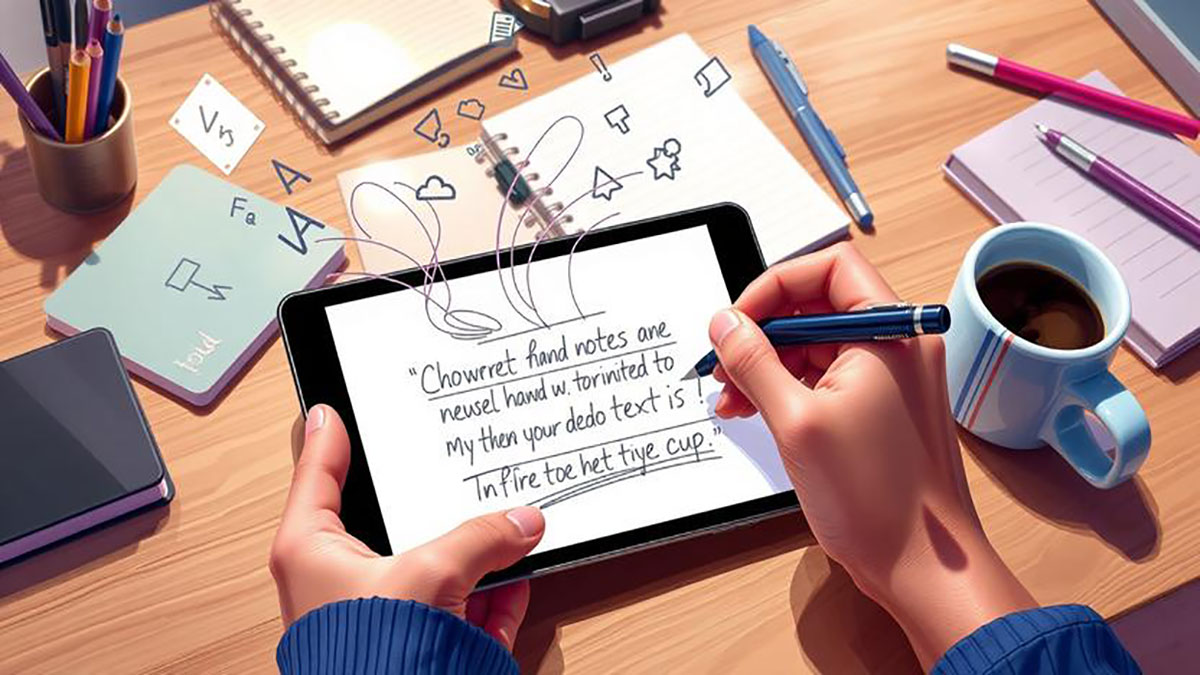 Fa
told
"Chowrret hand notes ane
neusel hand w. torinited to
My then your dedo text is !
Infire toe het tiye cup."